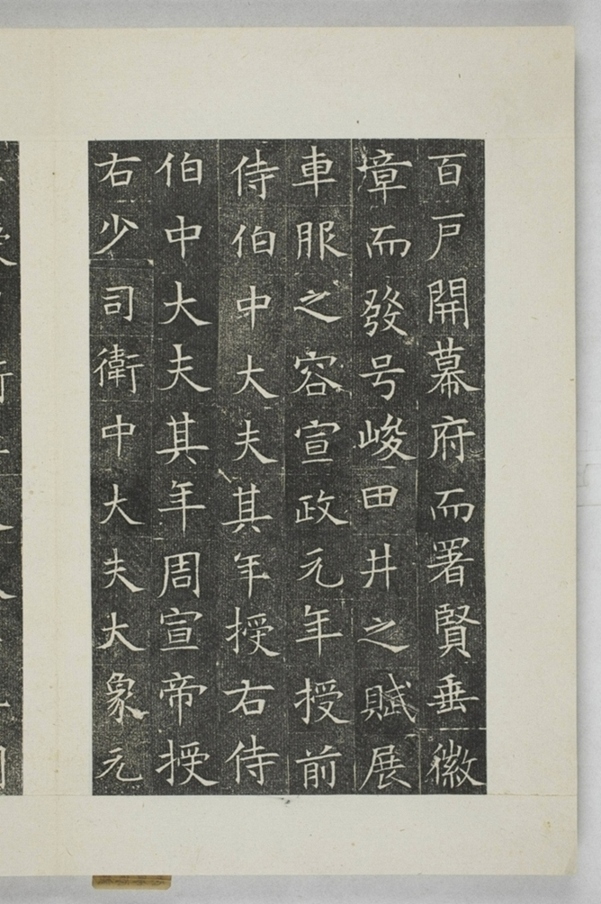 百戸開幕府而署賢垂徽
章而發号峻田井之賦展
車服之容宣政元年授前
侍伯中大夫其年授右侍
伯中大夫其年周宣帝授
右少司衛中大夫大象元